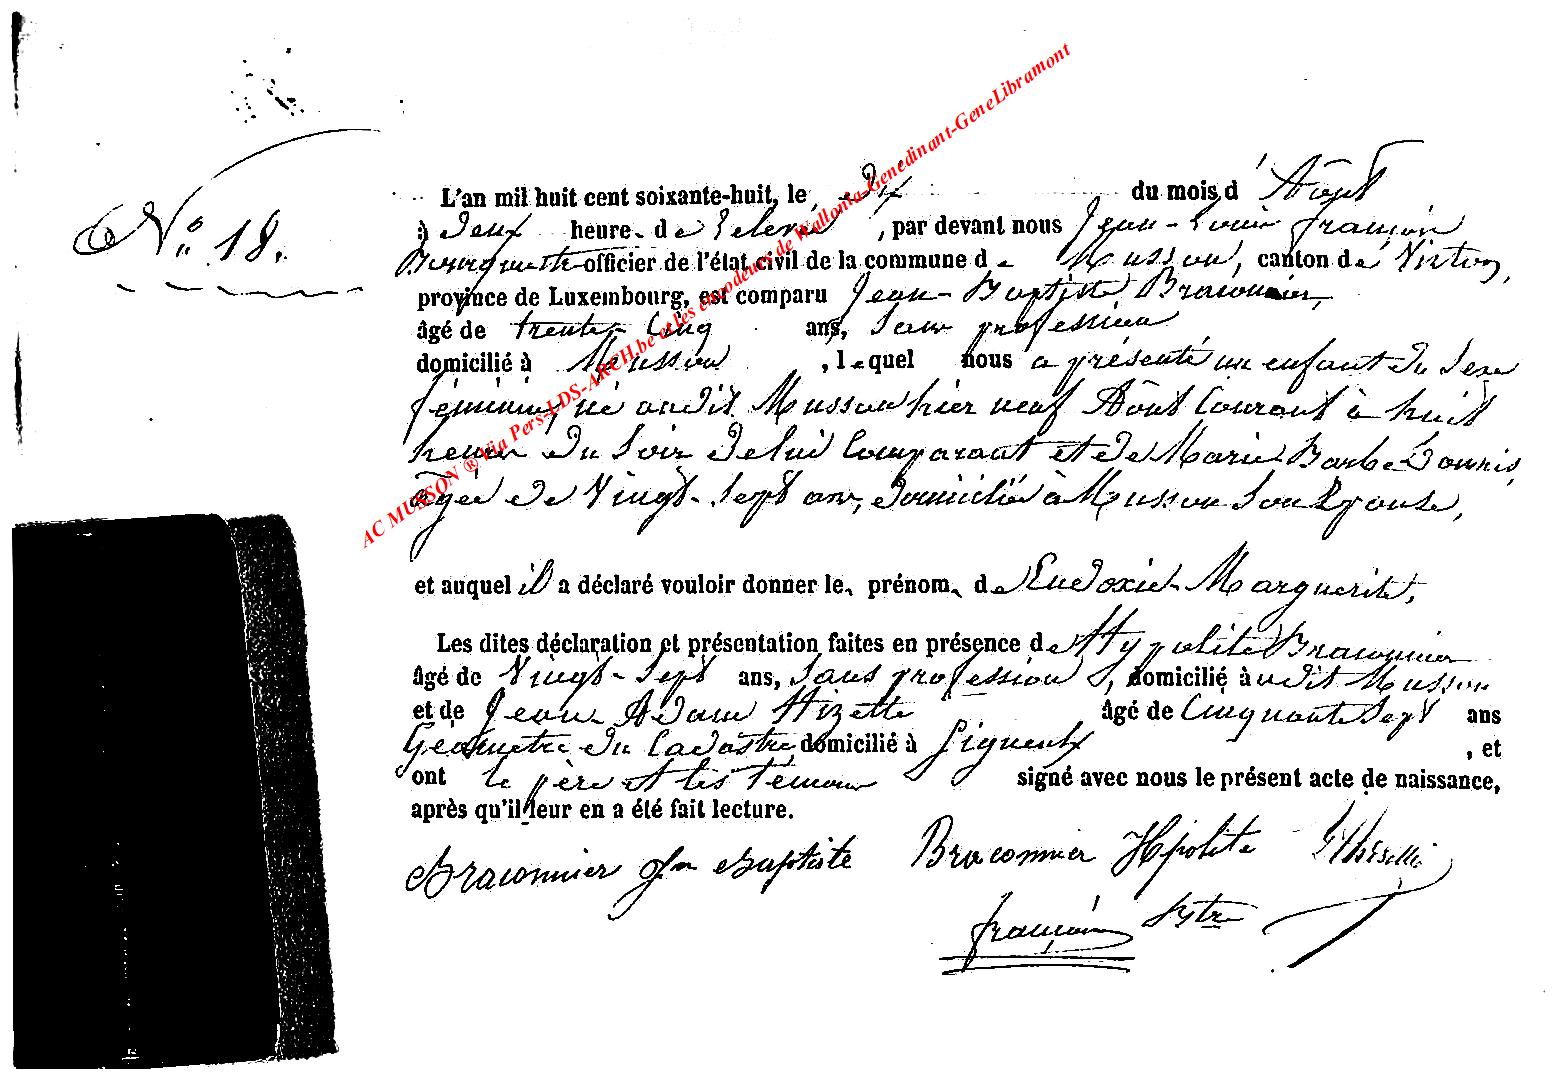 N.° 18.
L'an mil huit cent soixante-huit, le dix du mois d' Août
à deux heure de relevé, par devant nous Jean-Louis françois
Bourgmestre officier de l'état civil de la commune de Musson, canton de Virton,
province de Luxembourg, est comparu Jean-Baptiste Braconnier,
âgé de trente-cinq ans, sans profession
domicilié à Musson, lequel nous a présenté un enfant du sexe
féminin, né audit Musson hier neuf Août Courant à huit
heures du soir de lui Comparant et de Marie Barbe
âgée de Vingt-sept ans, domiciliée à Musson son Epouse,
et auquel il a déclaré vouloir donner le prénom de Eudoxie-Marguerite,
Les dites déclaration et présentation faites en présence de Hypolite Braconnier
âgé de Vingt-sept ans, sans profession, domicilié à udit Musson
et de Jean-Adam Hizette âgé de Cinquante sept ans
Géomètre du Cadastre domicilié à Signeulx, et
ont le père et les témoins signé avec nous le présent acte de naissance,
après qu'il leur en a été fait lecture.
Braconnier Jn Baptiste Braconnier Hpolite
françois
AC MUSSON ® Via Pers-LDS-ARCH.be et les encodeurs de Wallonia-Genedinant-GeneLibramont